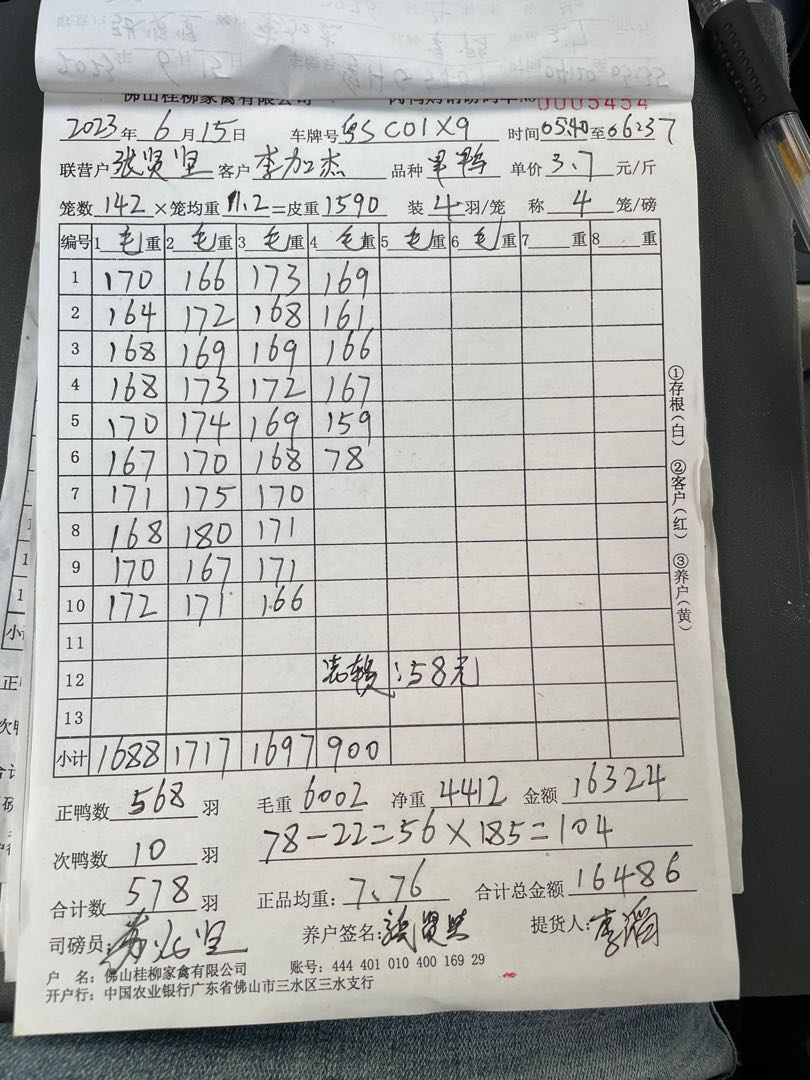 佛山桂柳家禽有限公司 No 0005454
2023年6月15日 车牌号粤SC01X9 时间0540至06237
联营户张贤坚 客户李加杰 品种 单价3.7元/斤
笼数142×笼均重11.2=皮重1590 装4羽/笼 称4笼/磅
编号 1毛重 2毛重 3毛重 4毛重 5毛重 6毛重 7重 8重
1 170 166 173 169
2 164 172 168 161
3 168 169 169 166
4 168 173 172 167
5 170 174 169 159
6 167 170 168 78
7 171 175 170
8 168 180 171
9 170 167 171
10 172 171 166
11
12 :58元
13
小计 1688 1717 1697 900
①存根(白) ②客户(红) ③养户(黄)
正鸭数568羽 毛重6002 净重4412 金额16324
次鸭数10羽 78-22=56×185=104
合计数578羽 正品均重:7.76 合计总金额16486
司磅员: 养户签名:张贤坚 提货人:李
户 名:佛山桂柳家禽有限公司 账号:444 401 010 400 169 29
开户行:中国农业银行广东省佛山市三水区三水支行